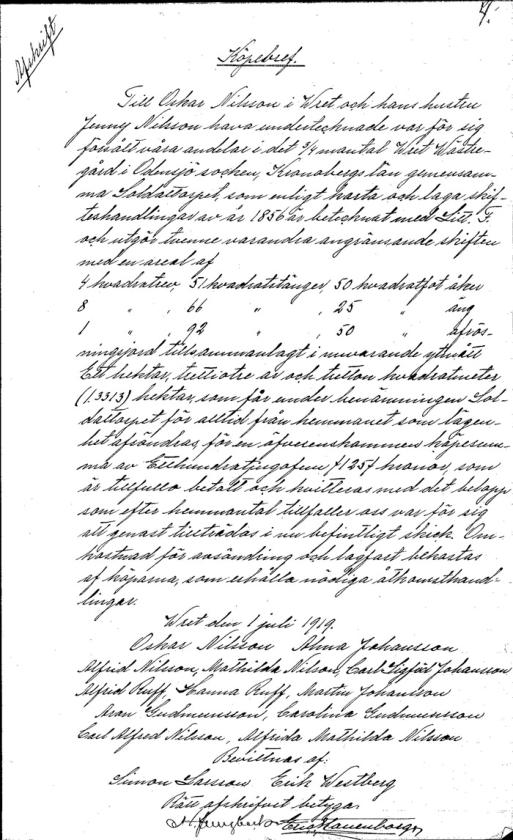 4.
Afskrift
Köpebref.
Till Oskar Nilsson i Wret och hans hustru
Jenny Nilsson hava undertecknade var för sig
försålt våra andelar i det 3/4 mantal Wret Wäste-
gård i Odensjö socken, Kronobergs län gemensam-
ma Soldattorpet, som enligt karta och laga skif-
teshandlingar av år 1856 är betecknat med Litt. F.
och utgör tvenne varandra angränsande skiften
med en areal af
4 kvadratrev, 51 kvadratstänger, 50 kvadratfot åker
8 " , 66 " , 25 " äng
1 " , 92 " , 50 " afrös-
ningsjord tillsammanlagt i nuvarande ytmått
Ett hektar, trettiotre ar och tretton kvadratmeter
(1.3313) hektar, som får under benämningen Sol-
dattorpet för alltid från hemmanet som lägen-
het afsöndras, för en öfverenskommen köpesum-
ma av Etthundratjugofem /125/ kronor, som
är tillfullo betalt och kvitteras med det belopp
som efter hemmantal tillfaller oss var för sig
att genast tillträdas i nu befintligt skick. Om-
kostnad för avsöndring och lagfart bekostas
af köparna, som erhålla nödiga åtkomsthand-
lingar.
Wret den 1 juli 1919.
Oskar Nilsson Alma Johansson
Alfrid Nilsson, Mathilda Nilson, Carl Sigfrid Johansson
Alfrid Ruff, Hanna Ruff, Martin Johansson
Aron Gudmunsson, Carolina Gudmunsson
Carl Alfred Nilsson, Alfrida Mathilda Nilsson
Bevittnas af:
Simon Larsson Erik Westberg
Rätt afskrifvet betygar